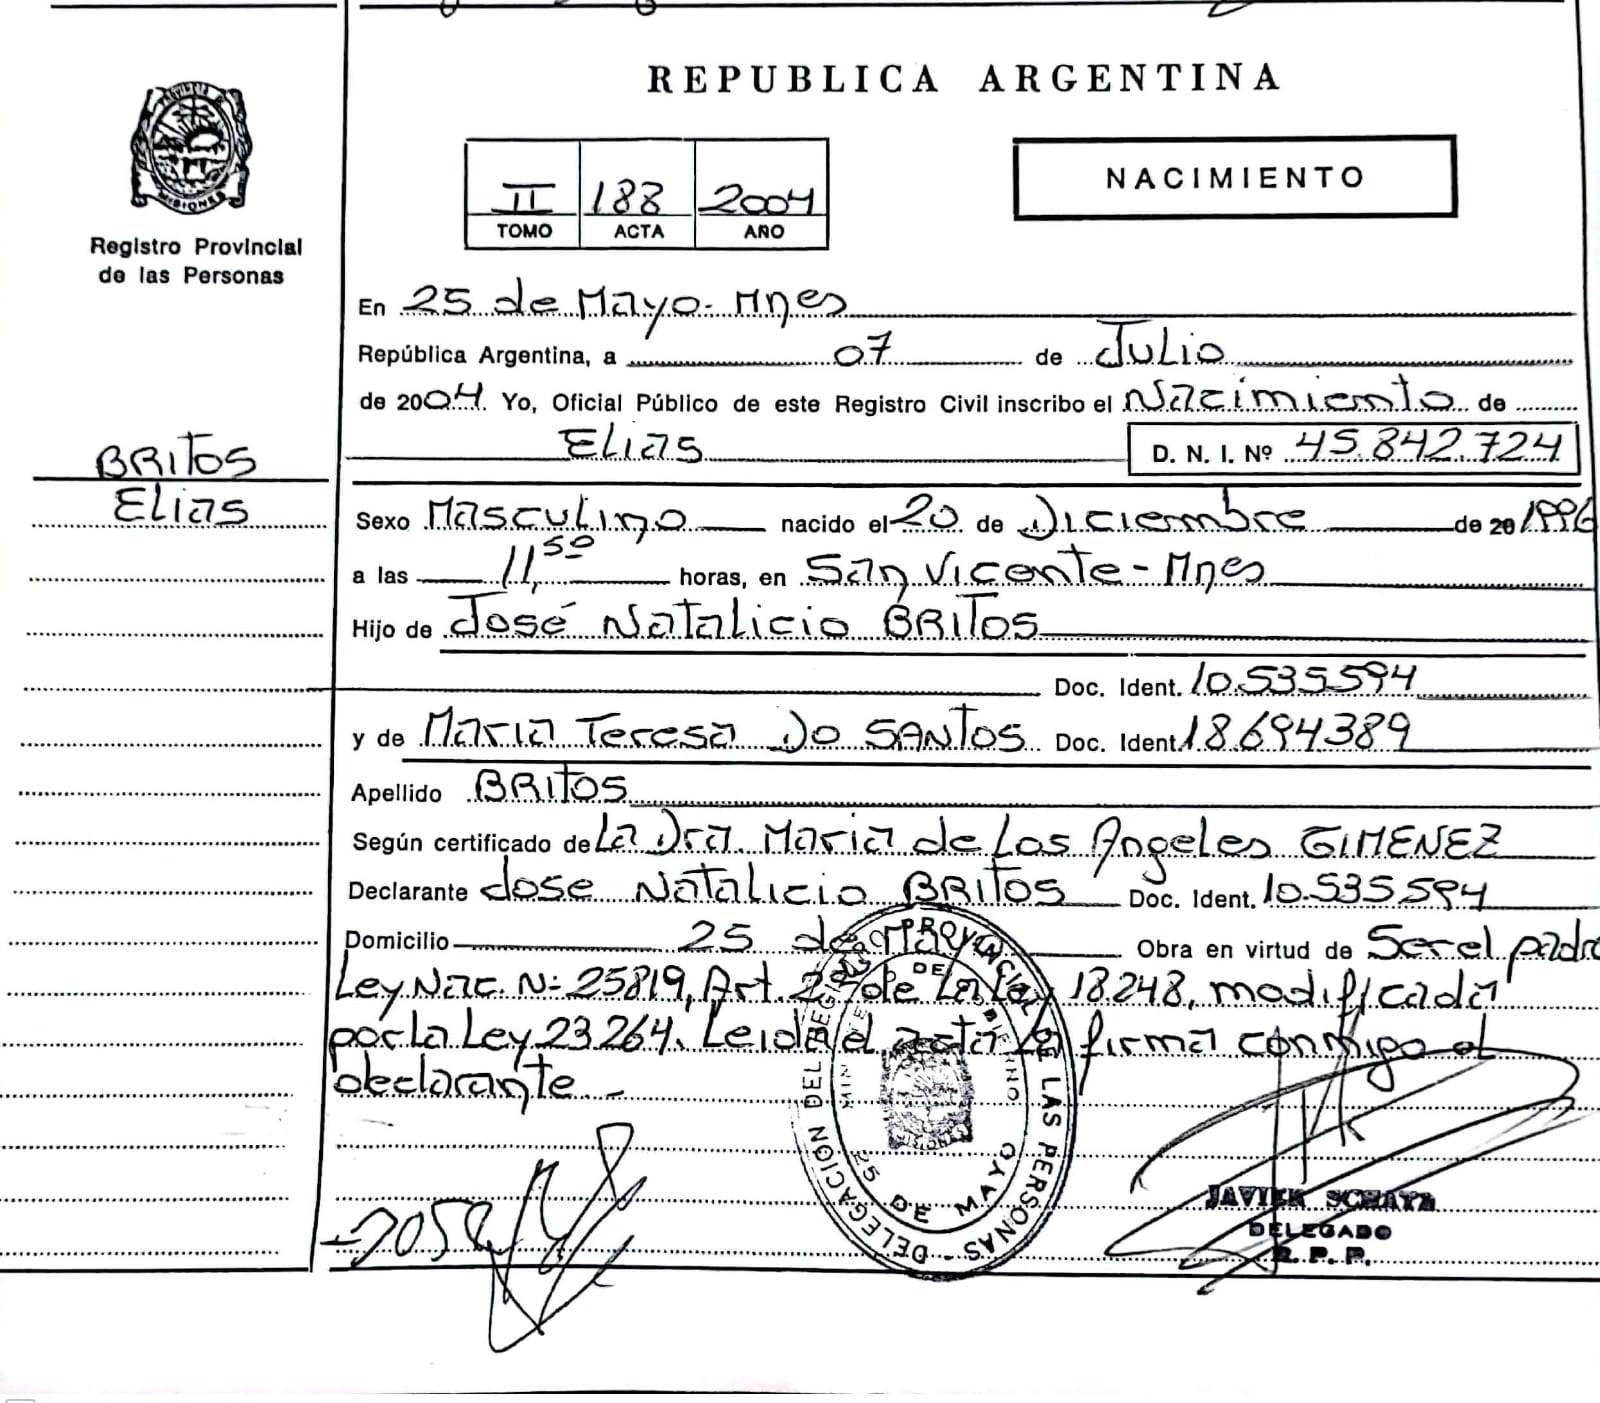 REPUBLICA ARGENTINA
PROVINCIA DE
MISIONES
Registro Provincial
de las Personas
II 188 2004
TOMO ACTA AÑO
NACIMIENTO
En 25 de Mayo- Mnes
República Argentina, a 07 de Julio
de 2004. Yo, Oficial Público de este Registro Civil inscribo el Nacimiento de
Elias D. N. I. Nº 45.842.724
BRITOS
Elias
Sexo Masculino nacido el 20 de Diciembre de 20 1996
a las 11,50 horas, en San Vicente - Mnes
Hijo de José Natalicio BRITOS
Doc. Ident. 10.535.594
y de Maria Teresa Do SANTOS Doc. Ident. 18.694389
Apellido BRITOS
Según certificado de La Dra. Maria de Los Angeles GIMENEZ
Declarante Jose Natalicio BRITOS Doc. Ident. 10.535.594
Domicilio 25 de Mayo Obra en virtud de Ser el padre
Ley Nac. N: 25819, Art. de La Ley 18248, modificada
por la Ley 23264. Leida el acta la firma conmigo el
declarante.-
DELEGACION DEL REGISTRO PROVINCIAL DE LAS PERSONAS -
MINISTERIO DE GOBIERNO
MISIONES
25 DE MAYO
JAVIER
DELEGADO
R. P. P.